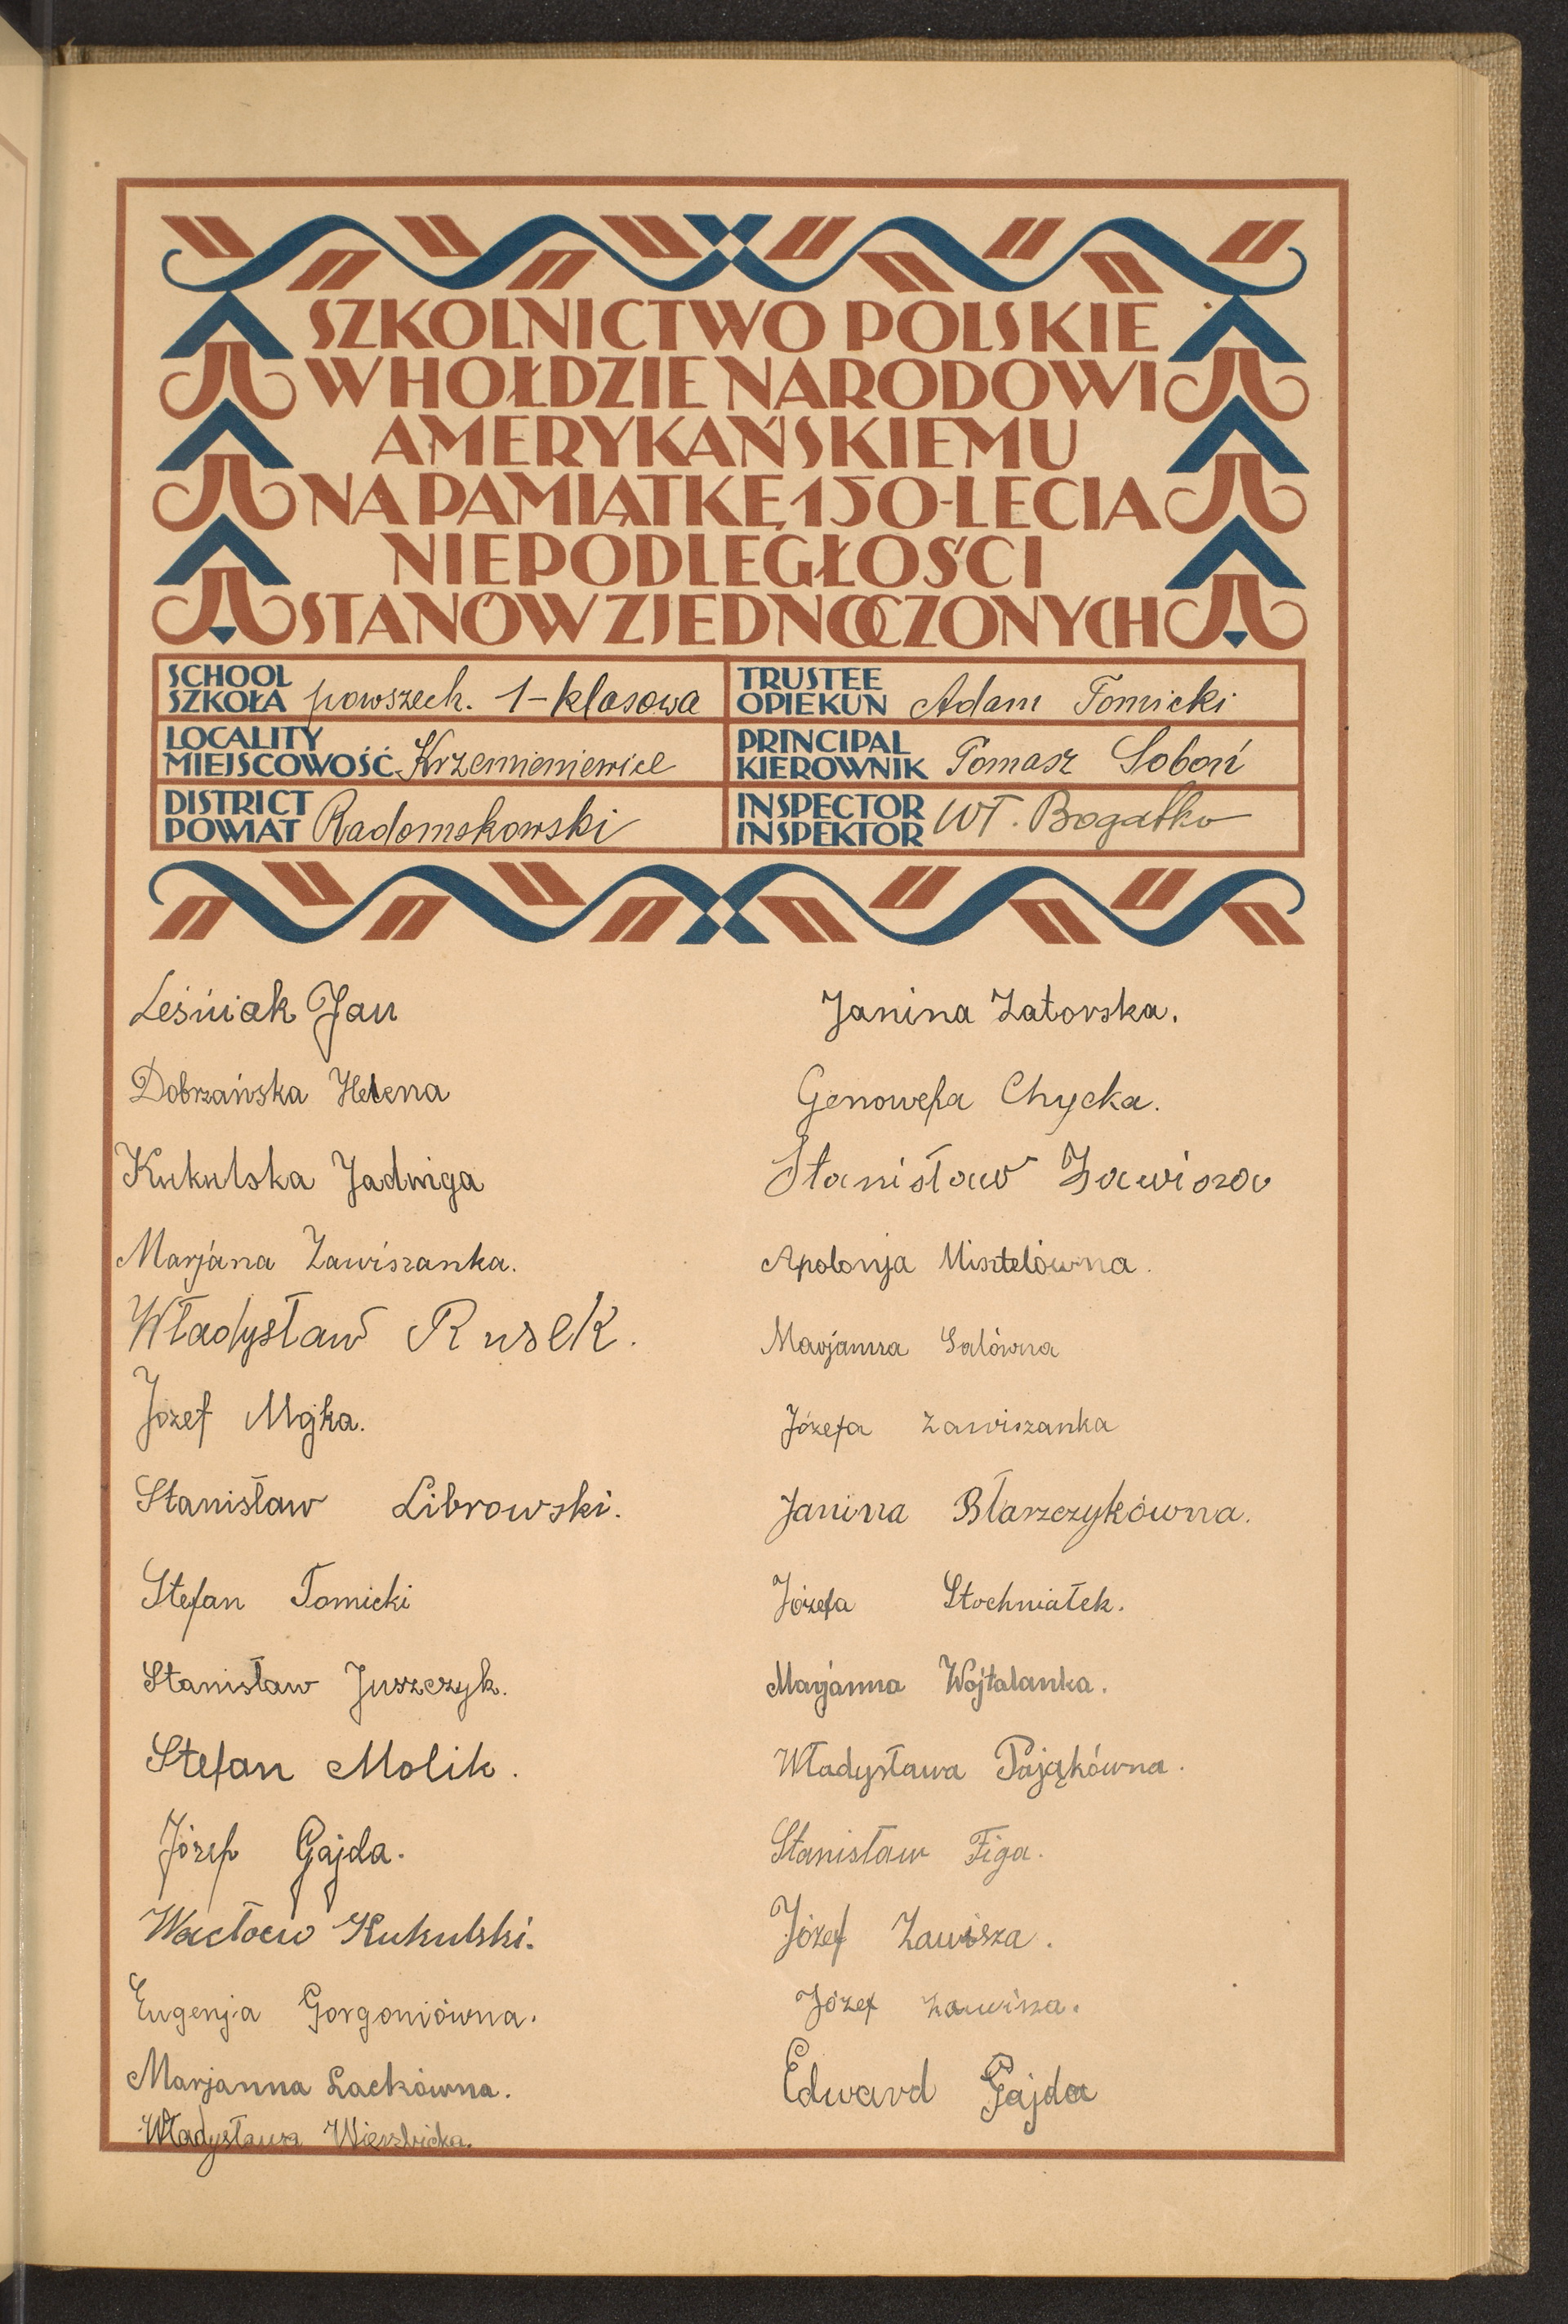 SZKOLNICTWO POLSKIE
W HOŁDZIE NARODOWI
AMERYKAŃSKIEMU
NA PAMIĄTKĘ 150-LECIA
NIEPODLEGŁOŚCI
STANÓW ZJEDNOCZONYCH
SCHOOL
SZKOŁA powszech. 1-klasowa
TRUSTEE
OPIEKUN Adam Tomicki
LOCALITY
MIEJSCOWOŚĆ Krzemieniewice
PRINCIPAL
KIEROWNIK Tomasz Soboń
DISTRICT
POWIAT Radomskowski
INSPECTOR
INSPEKTOR Wł. Bogatko
Leśniak Jan
Dobrzańska Helena
Kukulska Jadwiga
Marjana Zawiszanka.
Władysław Rusek.
Józef Mojka.
Stanisław Librowski.
Stefan Tomicki
Stanisław Juszczyk.
Stefan Molik.
Józef Gajda.
Wacław Kukulski.
Eugenja Gorgoniówna.
Marjanna Lackówna.
Władysława Wierzbicka.
Janina Zatorska.
Genowefa Chycka.
Stanisław Zawisza
Apolonja Misztelówna.
Marjanna Galówna
Józefa Zawiszanka
Janina Błarzczykówna.
Józefa Stochniałek.
Marjanna Wojtalanka.
Władysława Pająkówna.
Stanisław Figa.
Józef Zawisza.
Józef Zawisza.
Edward Gajda